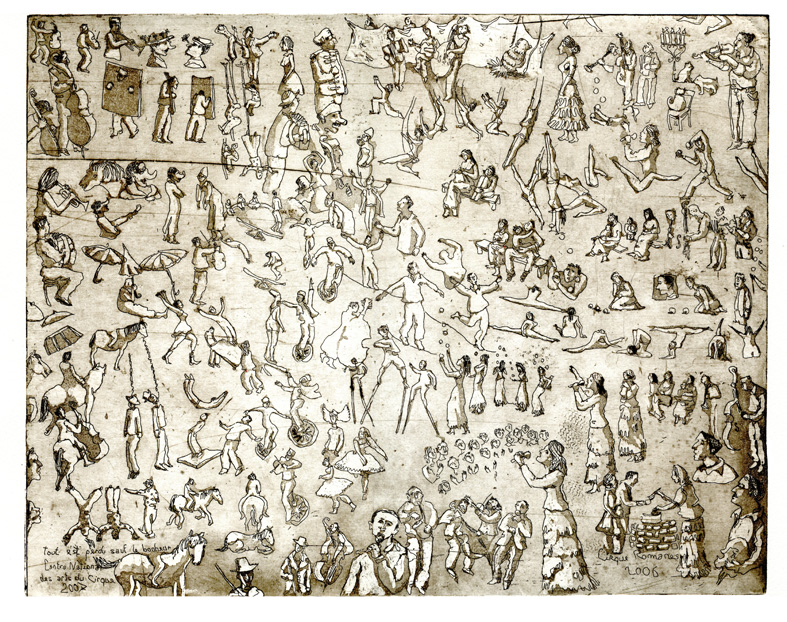 Tout est perdu sauf le bonheur
Centre National
des arts du Cirque
2007
Cirque Romanes
2006